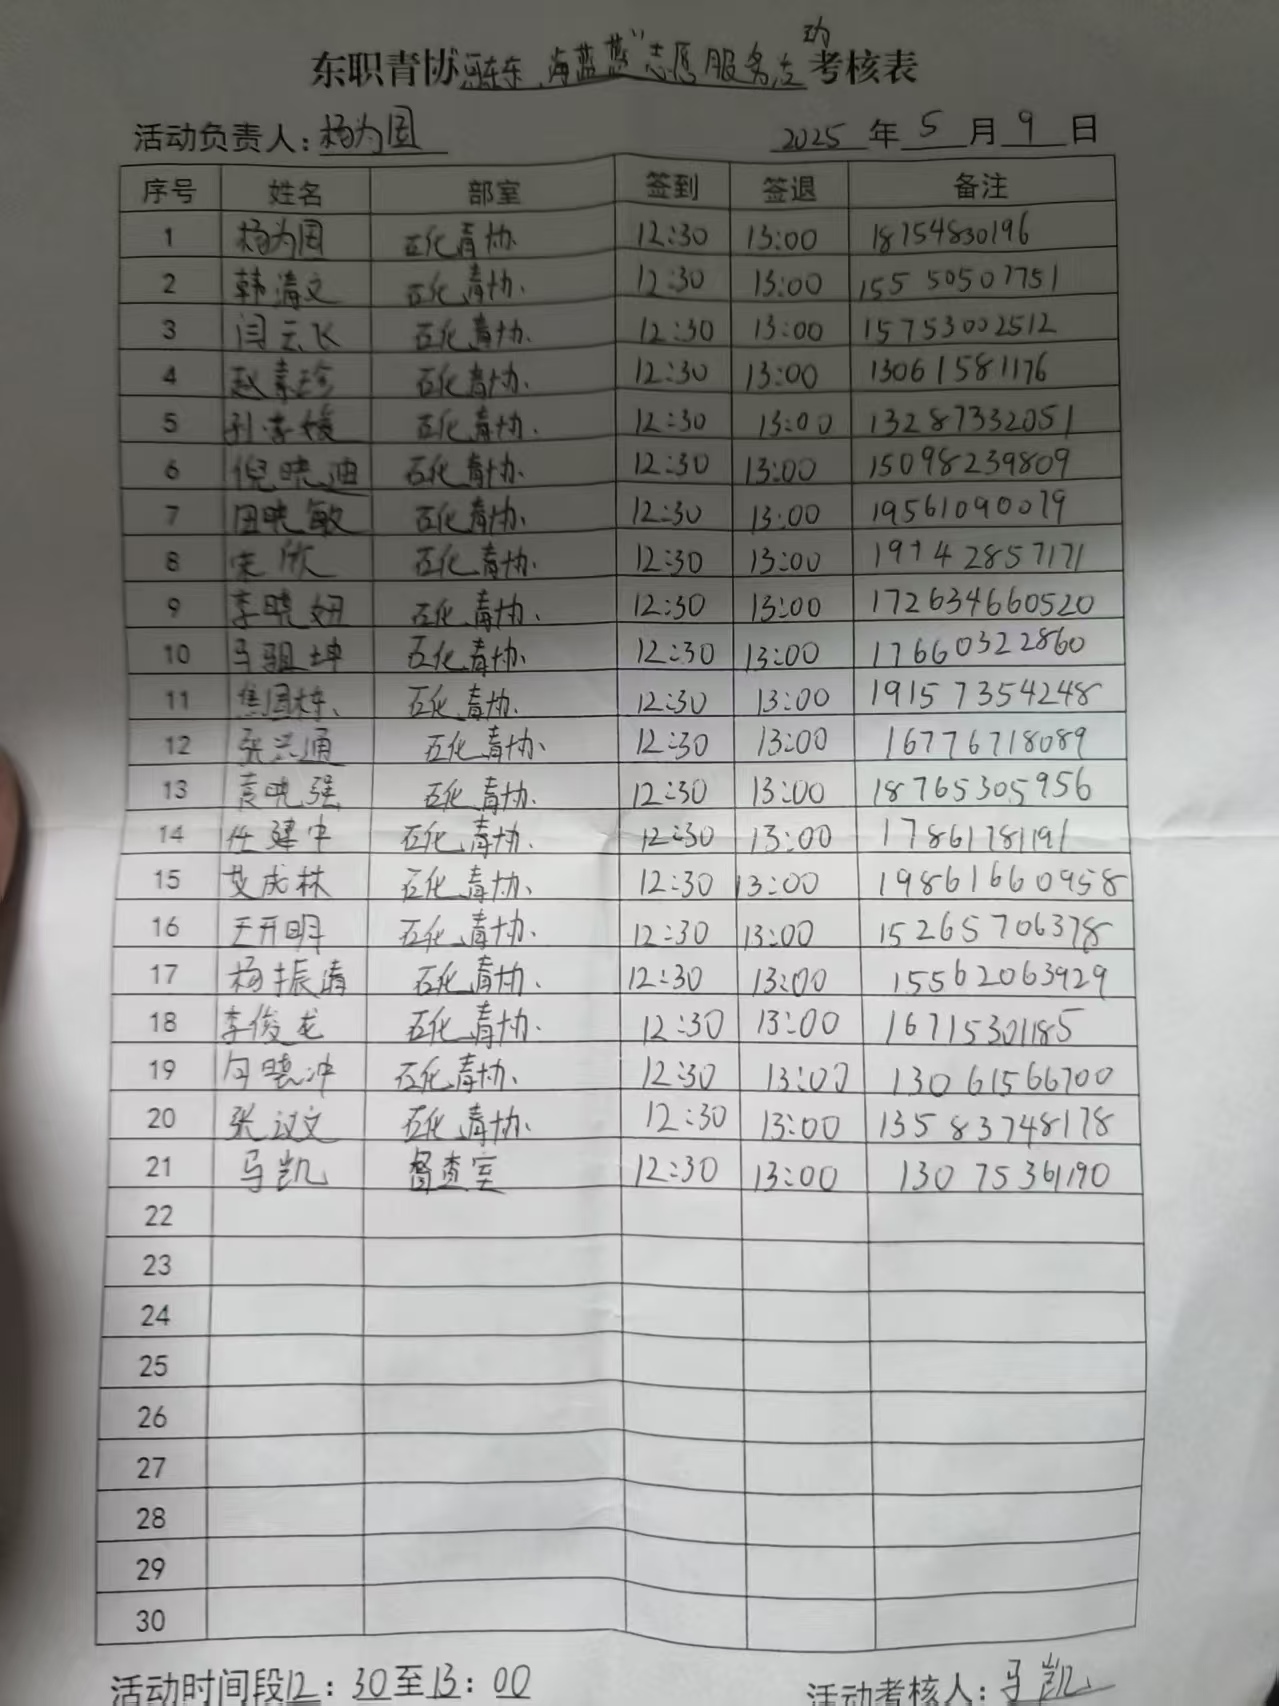 东职青协 海蓝蓝"志愿服务活动考核表
活动负责人：杨为国 2025 年 5 月 9 日
序号 姓名 部室 签到 签退 备注
1 杨为国 石化青协. 12:30 13:00 18754830196
2 韩清文 石化青协. 12:30 13:00 15550507751
3 闫云飞 石化青协. 12:30 13:00 15753002512
4 赵素珍 石化青协. 12:30 13:00 13061581176
5 石化青协. 12:30 13:00 13287332051
6 倪晓迪 石化青协. 12:30 13:00 15098239809
7 田晓敏 石化青协. 12:30 13:00 19561090079
8 宋欣 石化青协. 12:30 13:00 19742857171
9 李晓妞 石化青协. 12:30 13:00 172634660520
10 马驵坤 石化青协. 12:30 13:00 17660322860
11 焦国栋 石化青协. 12:30 13:00 19157354248
12 张兴通 石化青协. 12:30 13:00 16776718089
13 袁晓强 石化青协. 12:30 13:00 18765305956
14 任建中 石化青协. 12:30 13:00 17861781191
15 艾成林 石化青协. 12:30 13:00 198616660958
16 王开明 石化青协. 12:30 13:00 15265706378
17 杨振清 石化青协. 12:30 13:00 15562063929
18 李俊龙 石化青协. 12:30 13:00 16715301185
19 石化青协. 12:30 13:00 13061566700
20 张议文 石化青协. 12:30 13:00 13583748178
21 马凯 督查室 12:30 13:00 13075361190
22
23
24
25
26
27
28
29
30
活动时间段12：30至13：00 活动考核人：马凯